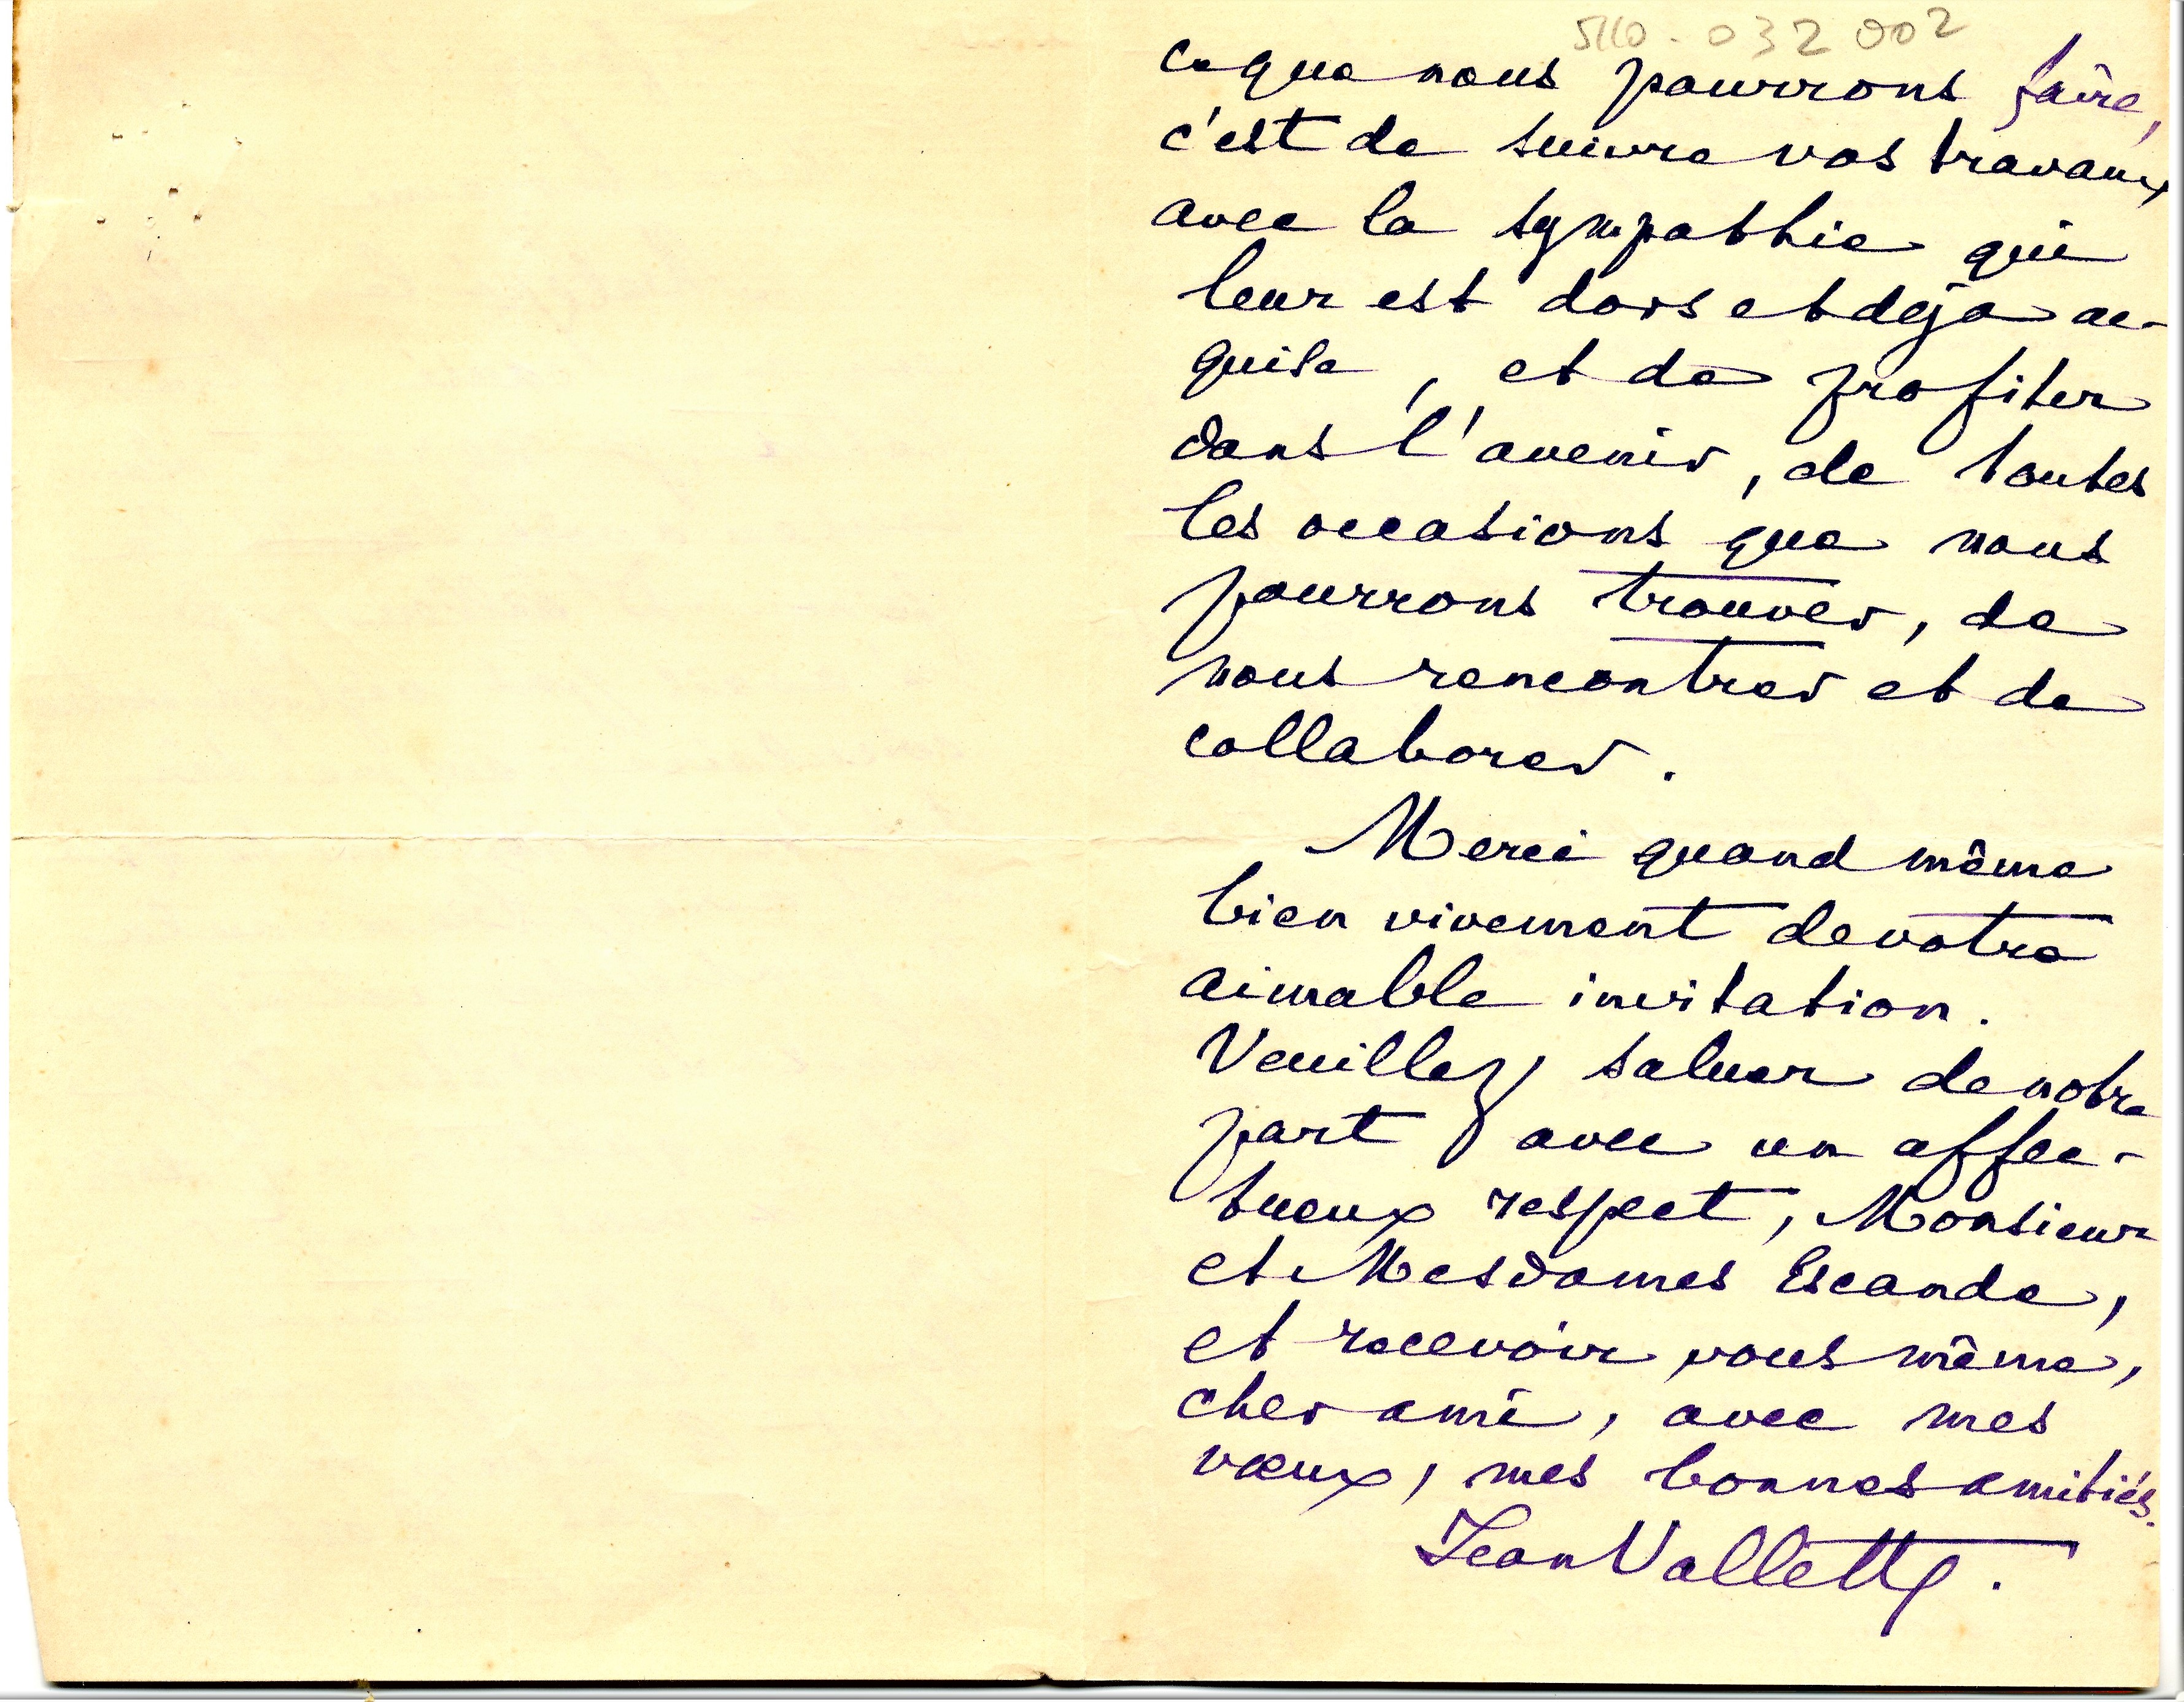 5110.032 002
ce que nous pourrons faire,
c'est de suivre vos travaux
avec la sympathie qui
leur est dors et déja ac-
quise, et de profiter
dans l'avenir, de toutes
les occasions que nous
pourrons trouver, de
nous rencontrer et de
collaborer.
Merci quand même
bien vivement de votre
aimable invitation.
Veuillez saluer de notre
part avec un affec-
tueux respect, Monsieur
et Mesdames Escande,
et recevoir vous même,
cher ami, avec mes
vœux, mes bonnes amitiés.
Jean Vallette.